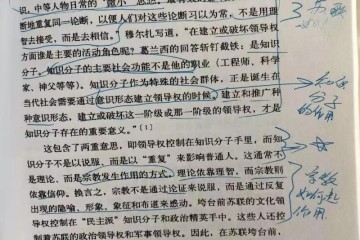 识。中等人物日常的“微小”思想
断地重复同一论断，以便人们对这些论断习以为常，不是用理
智去接受，而是去相信。”穆尔扎写道，“在建立或破坏领导权
方面谁是主要的活动角色呢？葛兰西的回答斩钉截铁：是知识
分子。知识分子的主要社会功能不是他的职业（工程师、科学
家、神父等等）。知识分子作为特殊的社会群体，正是诞生在
当代社会需要通过意识形态建立领导权的时候。建立和推广某
种意识形态，建立或破坏这一阶级或那一阶级的领导权，才是
知识分子存在的重要意义。”[1]
这包含了两重意思，即领导权控制在知识分子手里，而知
识分子不是以说服，而是以“重复”来影响普通人。这通常不
是理论，而是宗教发生作用的方式，理论依靠理智，而宗教则
依靠信仰。换言之，宗教不是通过论证来说服，而是通过反复
出现的隐喻、形象、象征和布道来感动。垮台前苏联的文化领
导权控制在“民主派”知识分子和政治精英手中。这些人还控
制着苏联的政治领导权和军事领导权。因此，在苏联垮台前，
苏联
知识
分子
的作用
宗教
如何起
作用